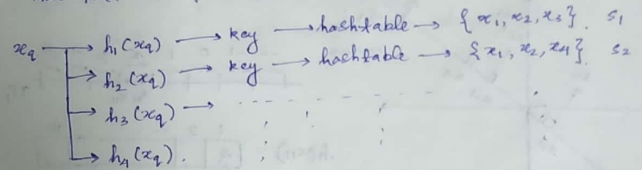 x_q → h_1(x_q) → key → hashtable → {x_1, x_2, x_3}. S_1
→ h_2(x_q) → key → hashtable → {x_1, x_2, x_4}. S_2
→ h_3(x_q) →
→ h_4(x_q).